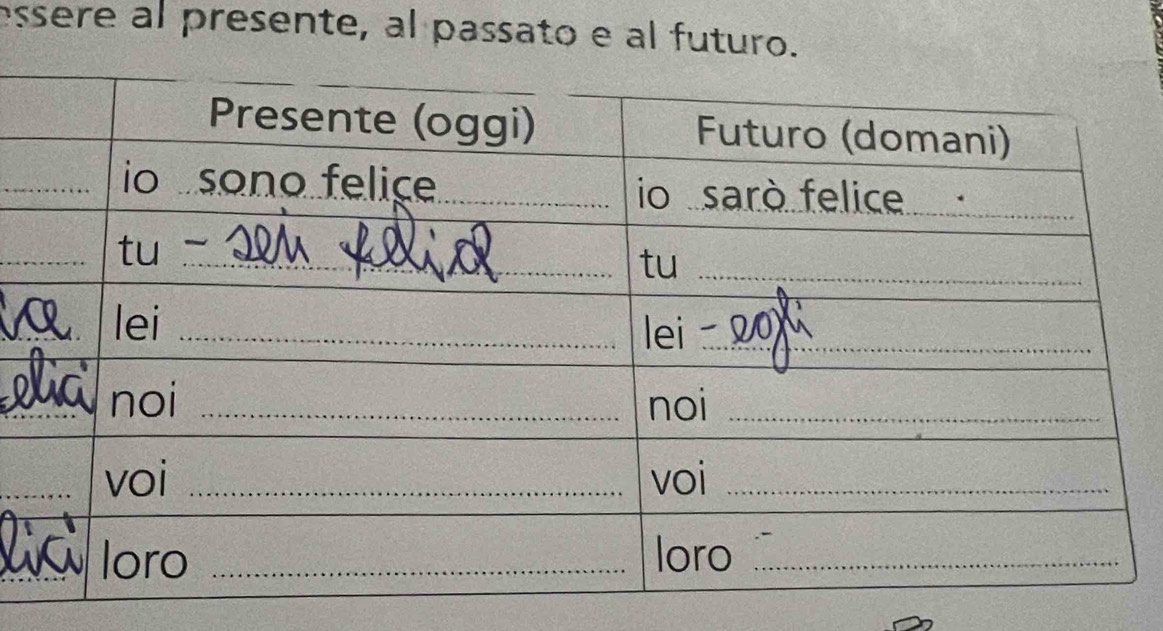 essere al presente, al passato e al futuro.
Presente (oggi) Futuro (domani)
io sono felice io sarò felice
tu - sei felice tu
ice lei lei - egli
elici noi noi
voi voi
lici loro loro